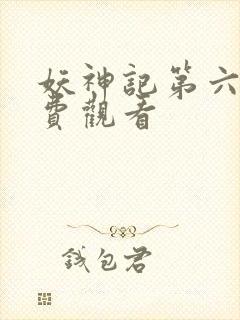 妖神記第六
費觀看
錢包君